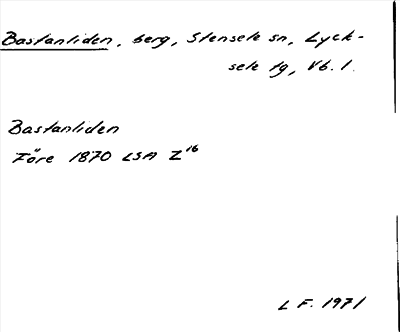 Bastanliden, berg, Stensele sn, Lyck-
sele tg, Vb. l.
Bastanliden
Före 1870 LSA Z16
L F. 1971